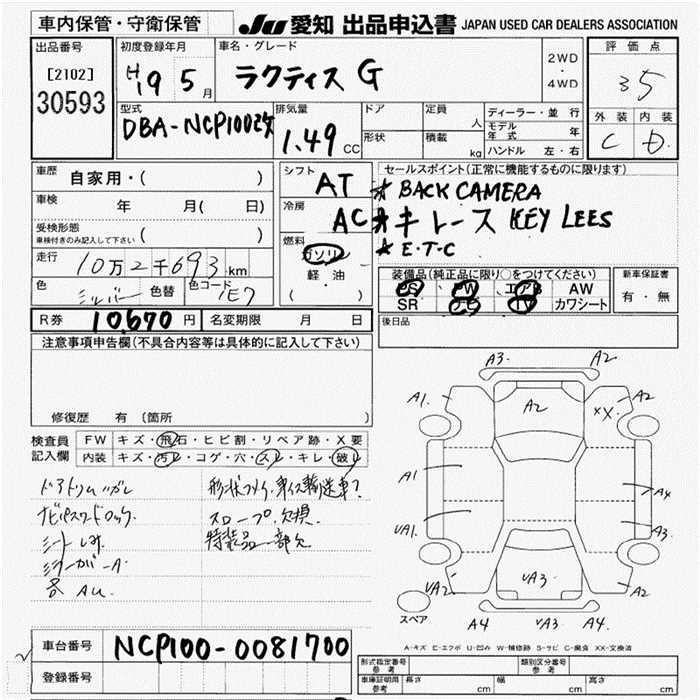 車内保管・守衛保管
JU 愛知 出品申込書 JAPAN USED CAR DEALERS ASSOCIATION
出品番号
[2102]
30593
初度登録年月
H19 5 月
車名・グレード
ラクティス G
2WD
・
4WD
評価点
3.5
外装 内装
C D
型式
DBA-NCP100改
排気量
1.49 CC
ドア
形状
定員 人
積載 kg
ディーラー・並行
モデル年式 年
ハンドル 左・右
車歴
自家用・( )
車検 年 月( 日)
受検形態
車検付きのみ記入して下さい ( )
走行 10万2千693 km
色 シルバー 色替 色コード 1E7
シフト AT
冷房 AC
燃料 ガソリン
軽油
( ・ )
セールスポイント(正常に機能するものに限ります)
★ BACK CAMERA
★ キーレース KEY LEES
★ E・T・C
装備品(純正品に限り○をつけてください)
PS PW エアB AW
SR ナビ TV カワシート
新車保証書
有・無
後日品
R券 10,670 円 名変期限 月 日
注意事項申告欄(不具合内容等は具体的に記入して下さい)
修復歴 有 (箇所
検査員記入欄
FW キズ・飛石・ヒビ割・リペア跡・X要
内装 キズ・汚レ・コゲ・穴・スレ・キレ・破レ
ドアトリムハガレ
ナビパスワードロック.
シートしみ
ミラーカバーA
各 AU.
形状コメント. 車イス輸送車?
スロープ欠損.
特装品一部欠
A3. A2
A1. A2 A2
XX.
A1 A4
VA1. A3.
VA2 VA3 A2
スペア
A4 VA3 A4.
A-キズ E-エクボ U-凹み W-補修跡 S-サビ C-腐食 XX-交換済
車台番号 NCP100-0081700
登録番号
形式指定番号 参考
類別区分番号 参考
車庫証明用 参考 長さ cm 幅 cm 高さ cm